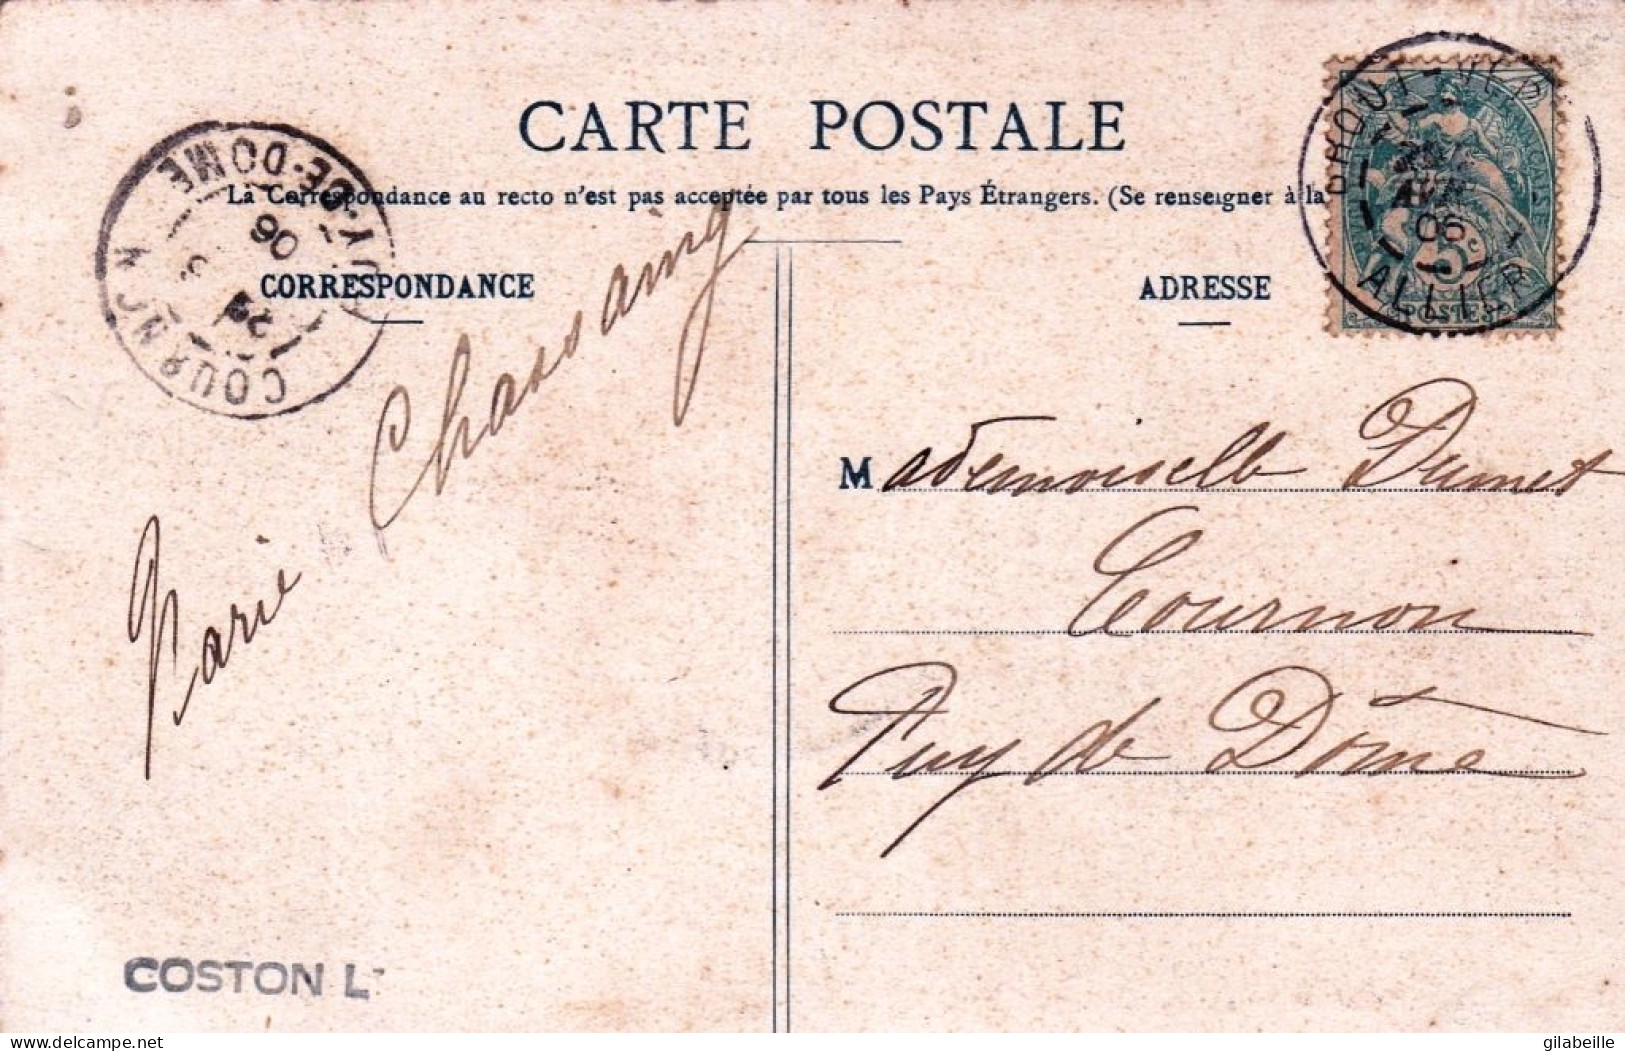 CARTE POSTALE
La Correspondance au recto n'est pas acceptée par tous les Pays Étrangers. (Se renseigner à la
CORRESPONDANCE
ADRESSE
COURNON
PUY-DE-DOME
29
06
BROUT-VER
AVR
06
ALLIER
5c
POSTES
Marie Chassaing
Mademoiselle Dumet
Cournon
Puy de Dôme
COSTON L
delcampe.net
gilabeille